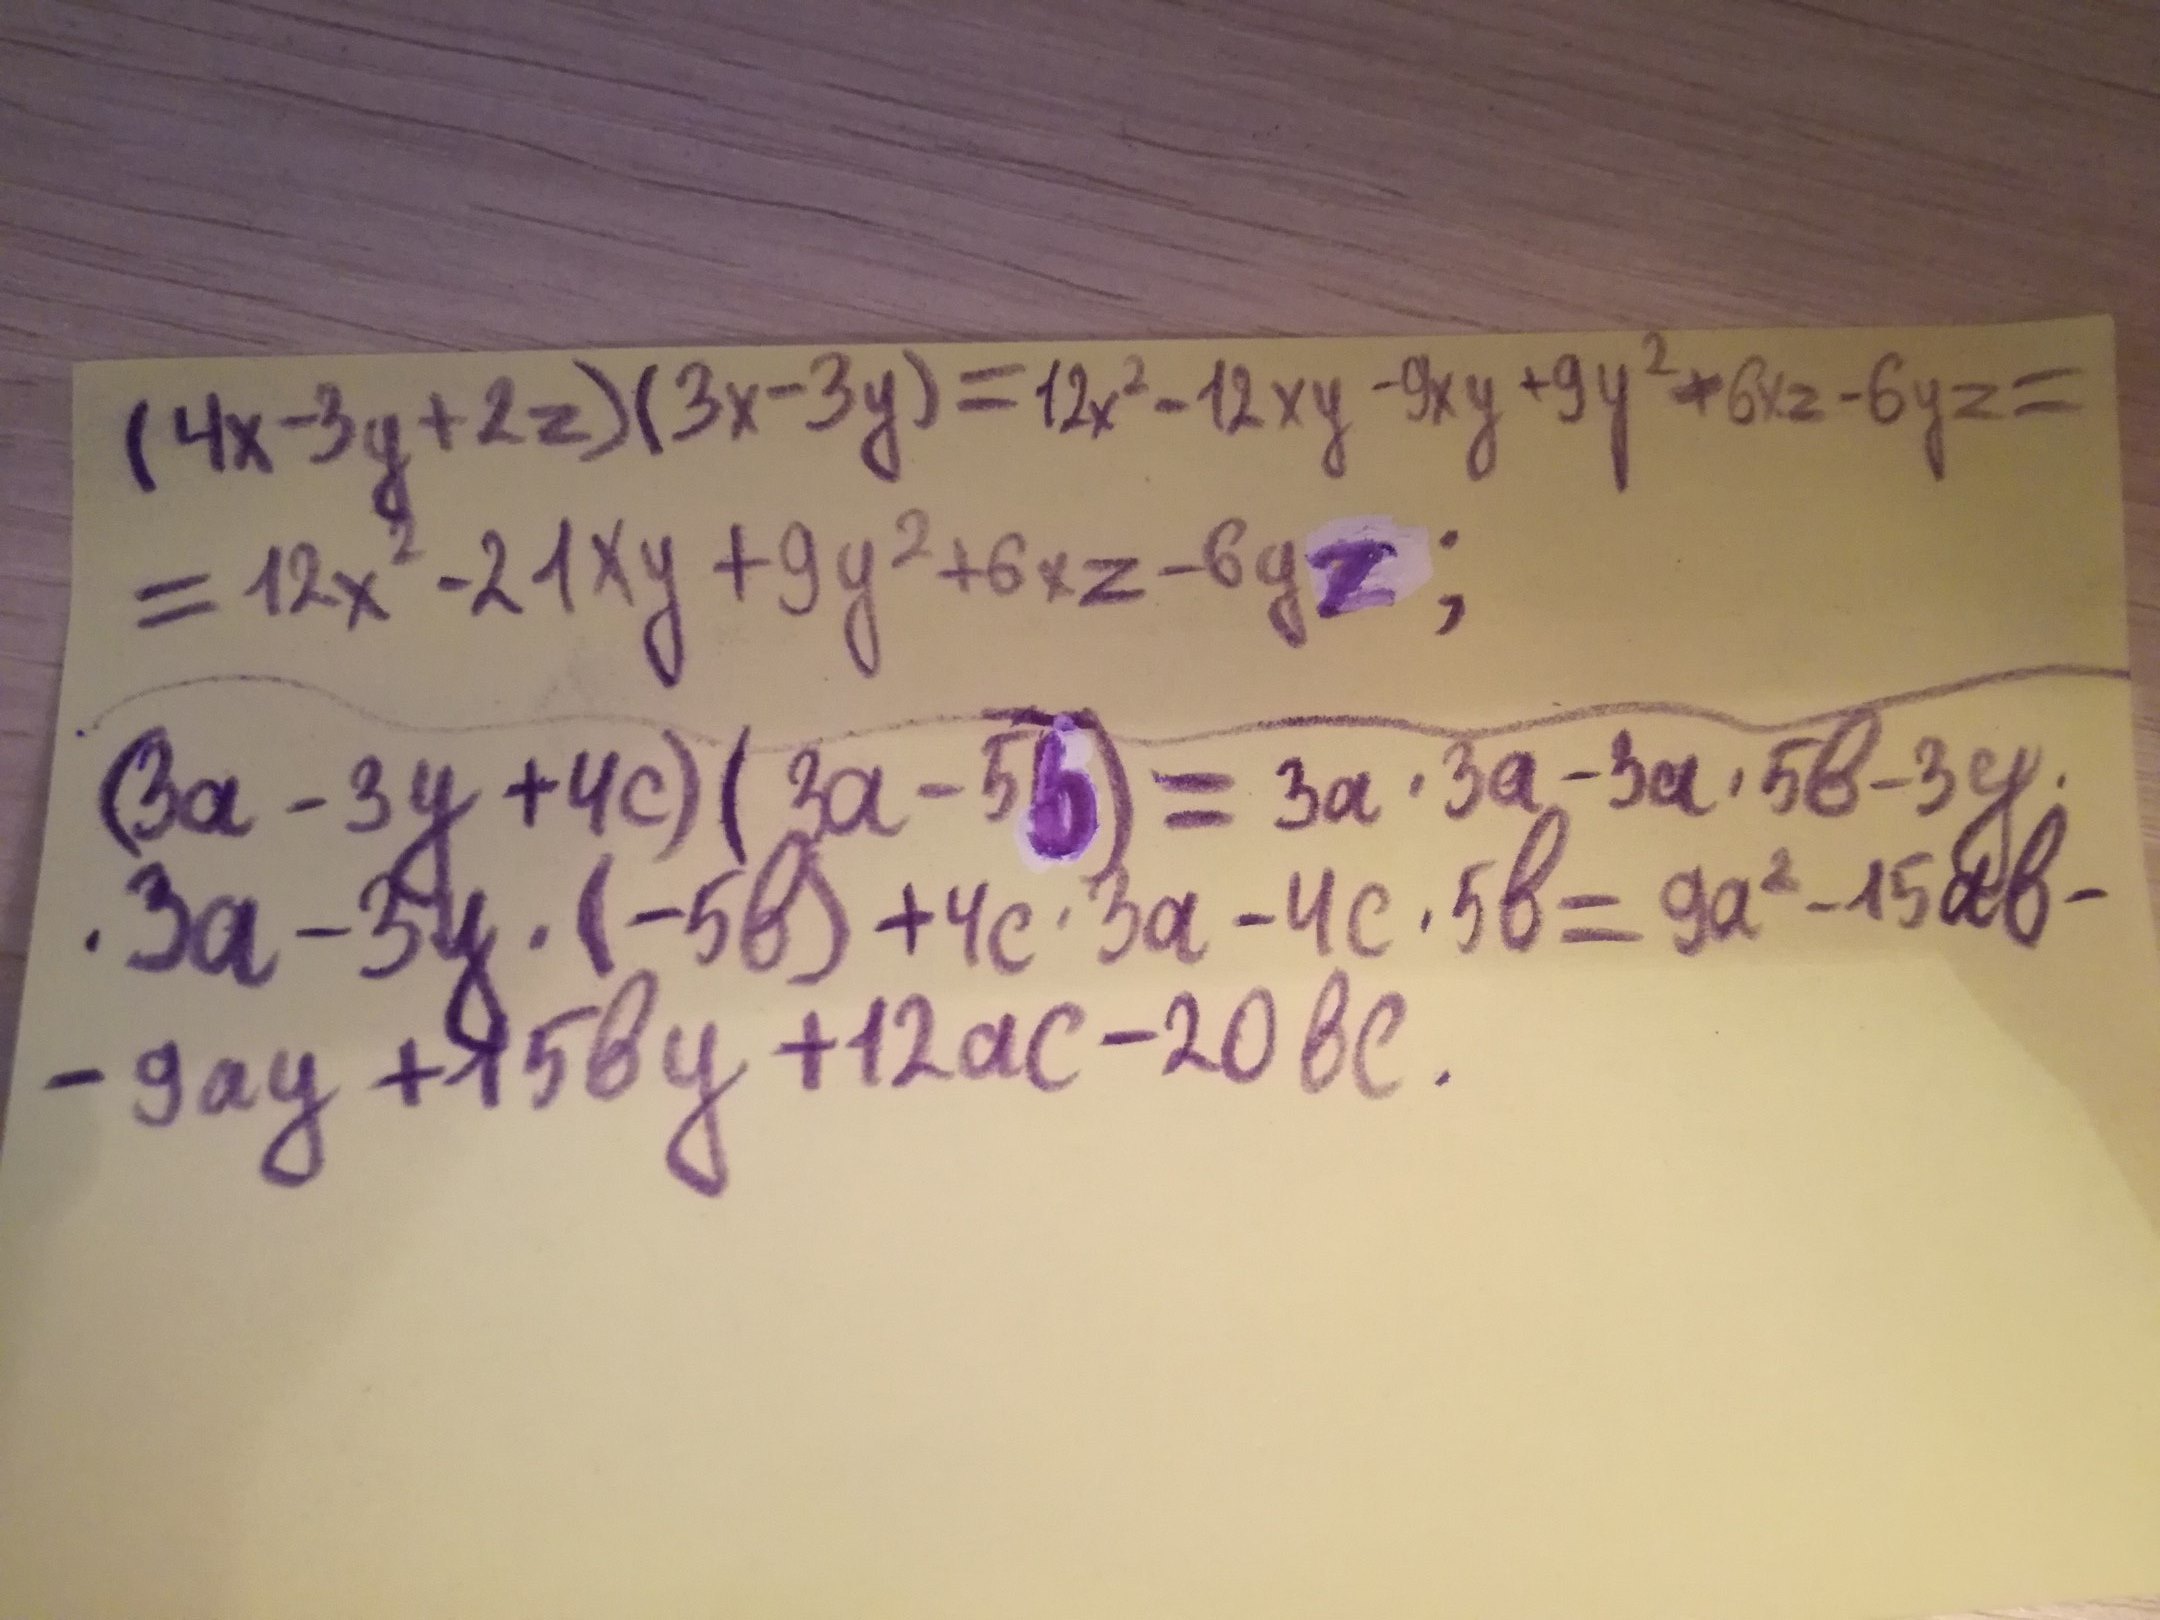 (4x-3y+2z)(3x-3y)=12x²-12xy-9xy+9y²+6xz-6yz=
=12x²-21xy+9y²+6xz-6yz;
(3a-3y+4c)(3a-5b)=3a·3a-3a·5b-3y·
·3a-3y·(-5b)+4c·3a-4c·5b=9a²-15ab-
-9ay+15by+12ac-20bc.